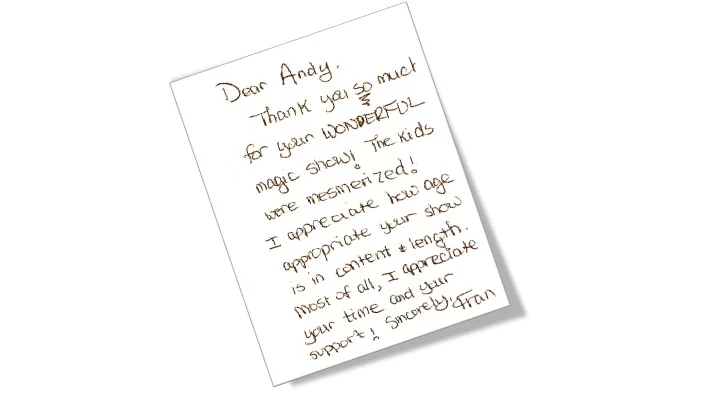 Dear Andy.
Thank you so much
for your WONDERFUL
magic show! The kids
were mesmerized!
I appreciate how age
appropriate your show
is in content & length.
most of all, I appreciate
your time and your
support! Sincerely, Fran